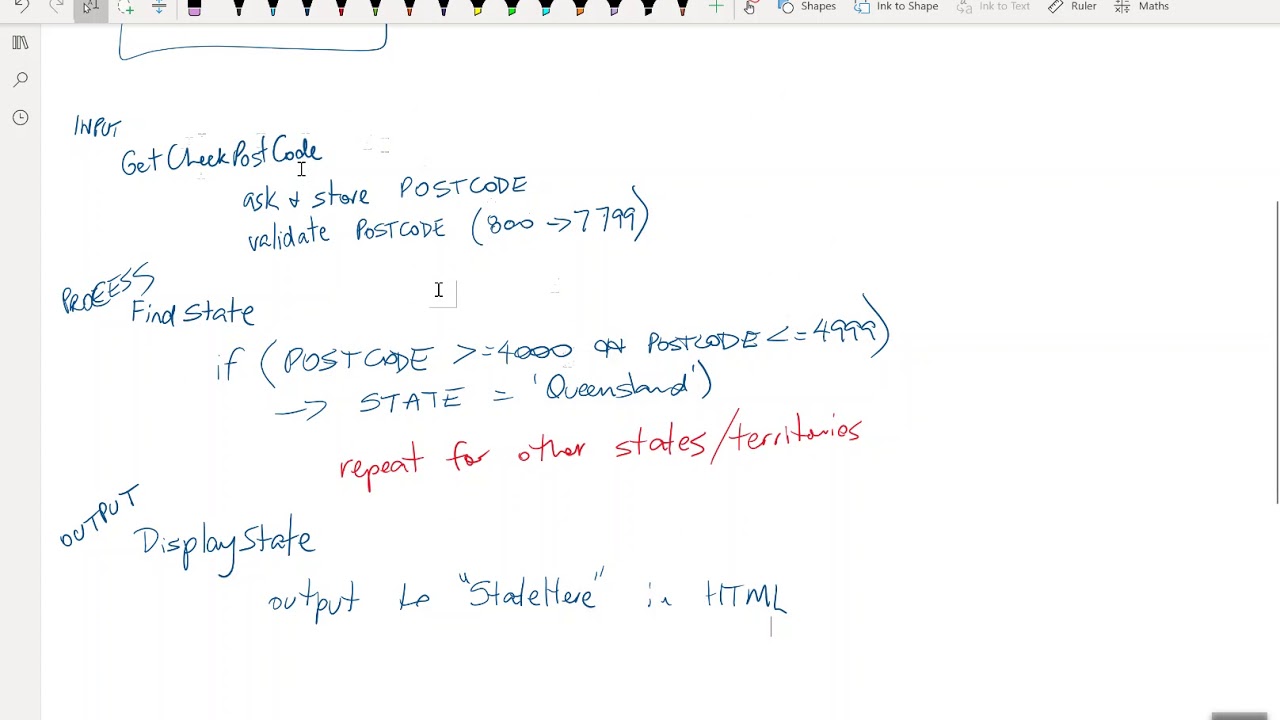 Shapes Ink to Shape Ink to Text Ruler Maths
INPUT
GetCheckPostCode
ask & store POSTCODE
validate POSTCODE (800 -> 7799)
PROCESS
FindState
if (POSTCODE >=4000 POSTCODE <=4999)
-> STATE = 'Queensland')
repeat for other states/territories
OUTPUT
DisplayState
output to "StateHere" in HTML